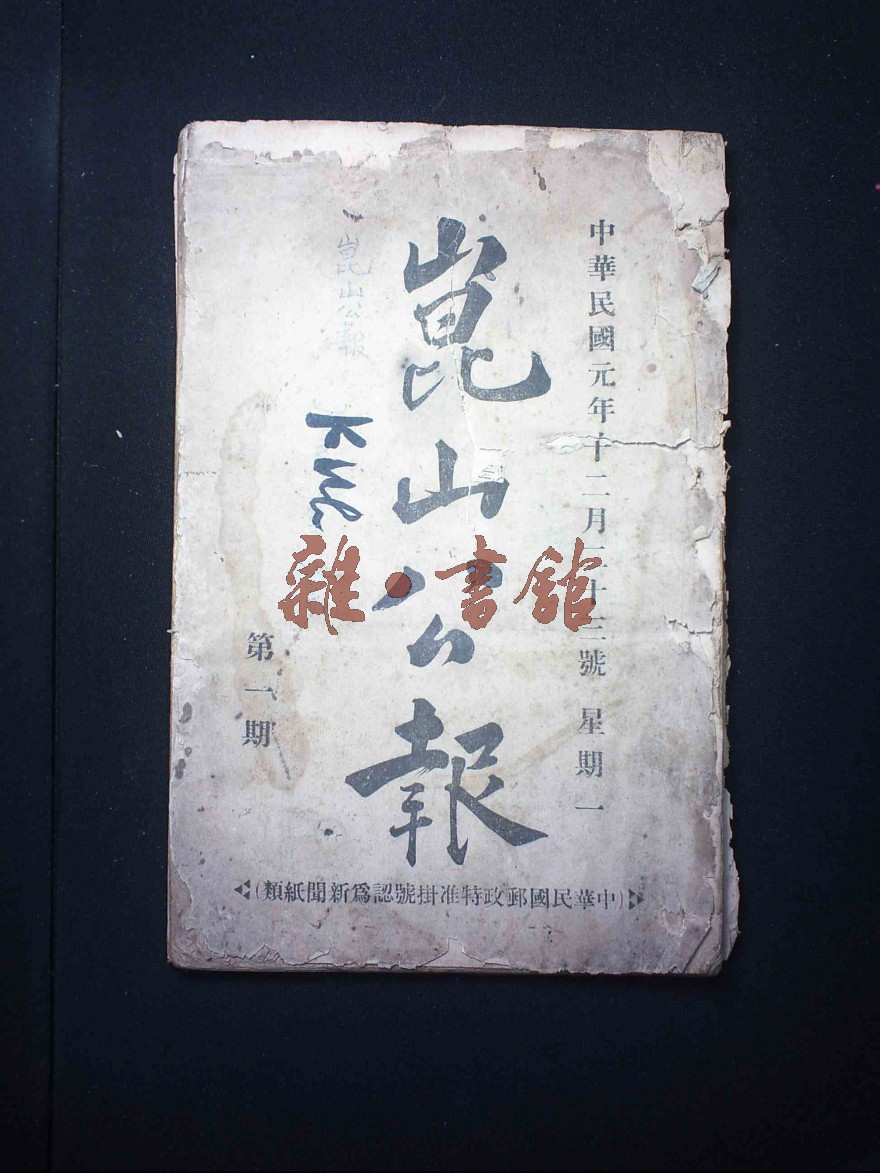 中華民國元年十二月二十三號 星期一
崑山公報
崑山公報
第一期
(中華民國郵政特准掛號認爲新聞紙類)
雜·書館